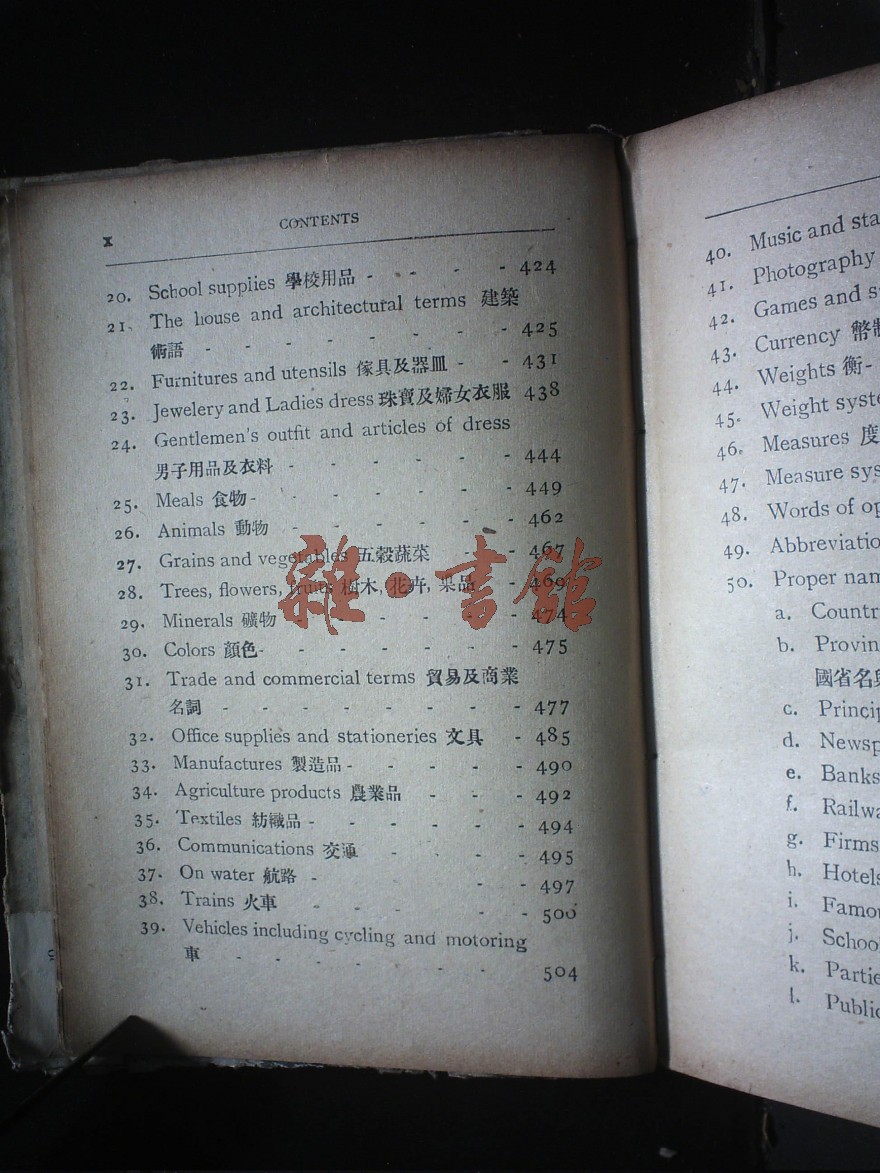 x CONTENTS
20. School supplies 學校用品 - - - - 424
21. The house and architectural terms 建築
術語 - - - - - - - - 425
22. Furnitures and utensils 傢具及器皿 - - 431
23. Jewelery and Ladies dress 珠寶及婦女衣服 438
24. Gentlemen's outfit and articles of dress
男子用品及衣料 - - - - - - 444
25. Meals 食物 - - - - - - - 449
26. Animals 動物 - - - - - - - 462
27. Grains and vegetables 五穀蔬菜 - - 467
28. Trees, flowers, fruits 樹木, 花卉, 果品 - 469
29. Minerals 礦物 - - - - - - 474
30. Colors 顔色 - - - - - - - 475
31. Trade and commercial terms 貿易及商業
名詞 - - - - - - - - 477
32. Office supplies and stationeries 文具 - 485
33. Manufactures 製造品 - - - - - 490
34. Agriculture products 農業品 - - - 492
35. Textiles 紡織品 - - - - - - 494
36. Communications 交通 - - - - 495
37. On water 航路 - - - 497
38. Trains 火車 - - - - 500
39. Vehicles including cycling and motoring
車 - - - - - - - 504
雜·書館
40. Music and sta
41. Photography
42. Games and s
43. Currency 幣制
44. Weights 衡 -
45. Weight syste
46. Measures 度
47. Measure sys
48. Words of op
49. Abbreviatio
50. Proper nam
a. Countr
b. Provin
國省名與
c. Princip
d. Newsp
e. Banks
f. Railwa
g. Firms
h. Hotels
i. Famou
j. School
k. Partie
l. Public